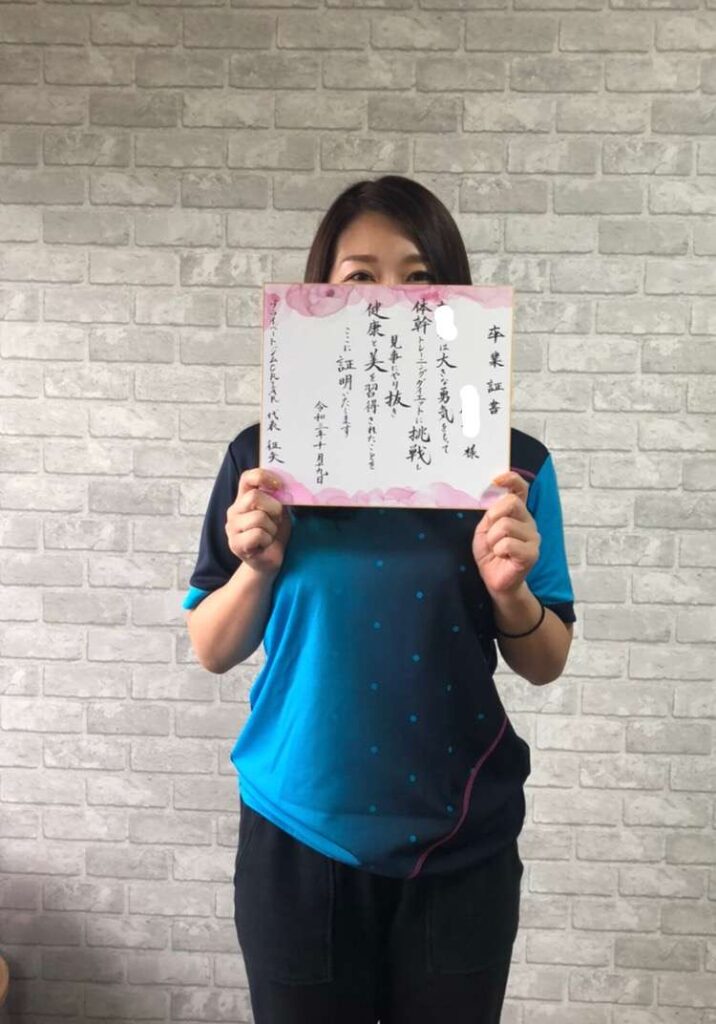 卒業証書
様
は大きな勇気をもって
体幹トレーニングダイエットに挑戦し
見事にやり抜き
健康と美を習得されたことを
ここに証明いたします
令和三年十月九日
代表 征矢